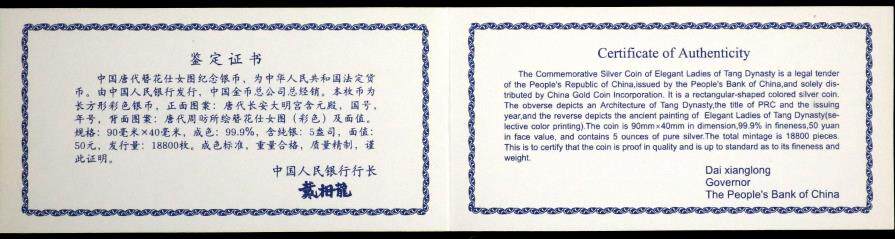 鉴定证书
中国唐代簪花仕女图纪念银币，为中华人民共和国法定货
币。由中国人民银行发行，中国金币总公司总经销。本枚币为
长方形彩色银币，正面图案：唐代长安大明宫含元殿，国号，
年号，背面图案：唐代周昉所绘簪花仕女图（彩色）及面值。
规格：90毫米×40毫米，成色：99.9%，含纯银：5盎司，面值：
50元，发行量：18800枚。成色标准，重量合格，质量精制，谨
此证明。
中国人民银行行长
戴相龍
Certificate of Authenticity
The Commemorative Silver Coin of Elegant Ladies of Tang Dynasty is a legal tender
of the People's Republic of China,issued by the People's Bank of China,and solely dis-
tributed by China Gold Coin Incorporation. It is a rectangular-shaped colored silver coin.
The obverse depicts an Architecture of Tang Dynasty,the title of PRC and the issuing
year,and the reverse depicts the ancient painting of Elegant Ladies of Tang Dynasty(se-
lective color printing).The coin is 90mm×40mm in dimension,99.9% in fineness,50 yuan
in face value, and contains 5 ounces of pure silver.The total mintage is 18800 pieces.
This is to certify that the coin is proof in quality and is up to standard as to its fineness and
weight.
Dai xianglong
Governor
The People's Bank of China